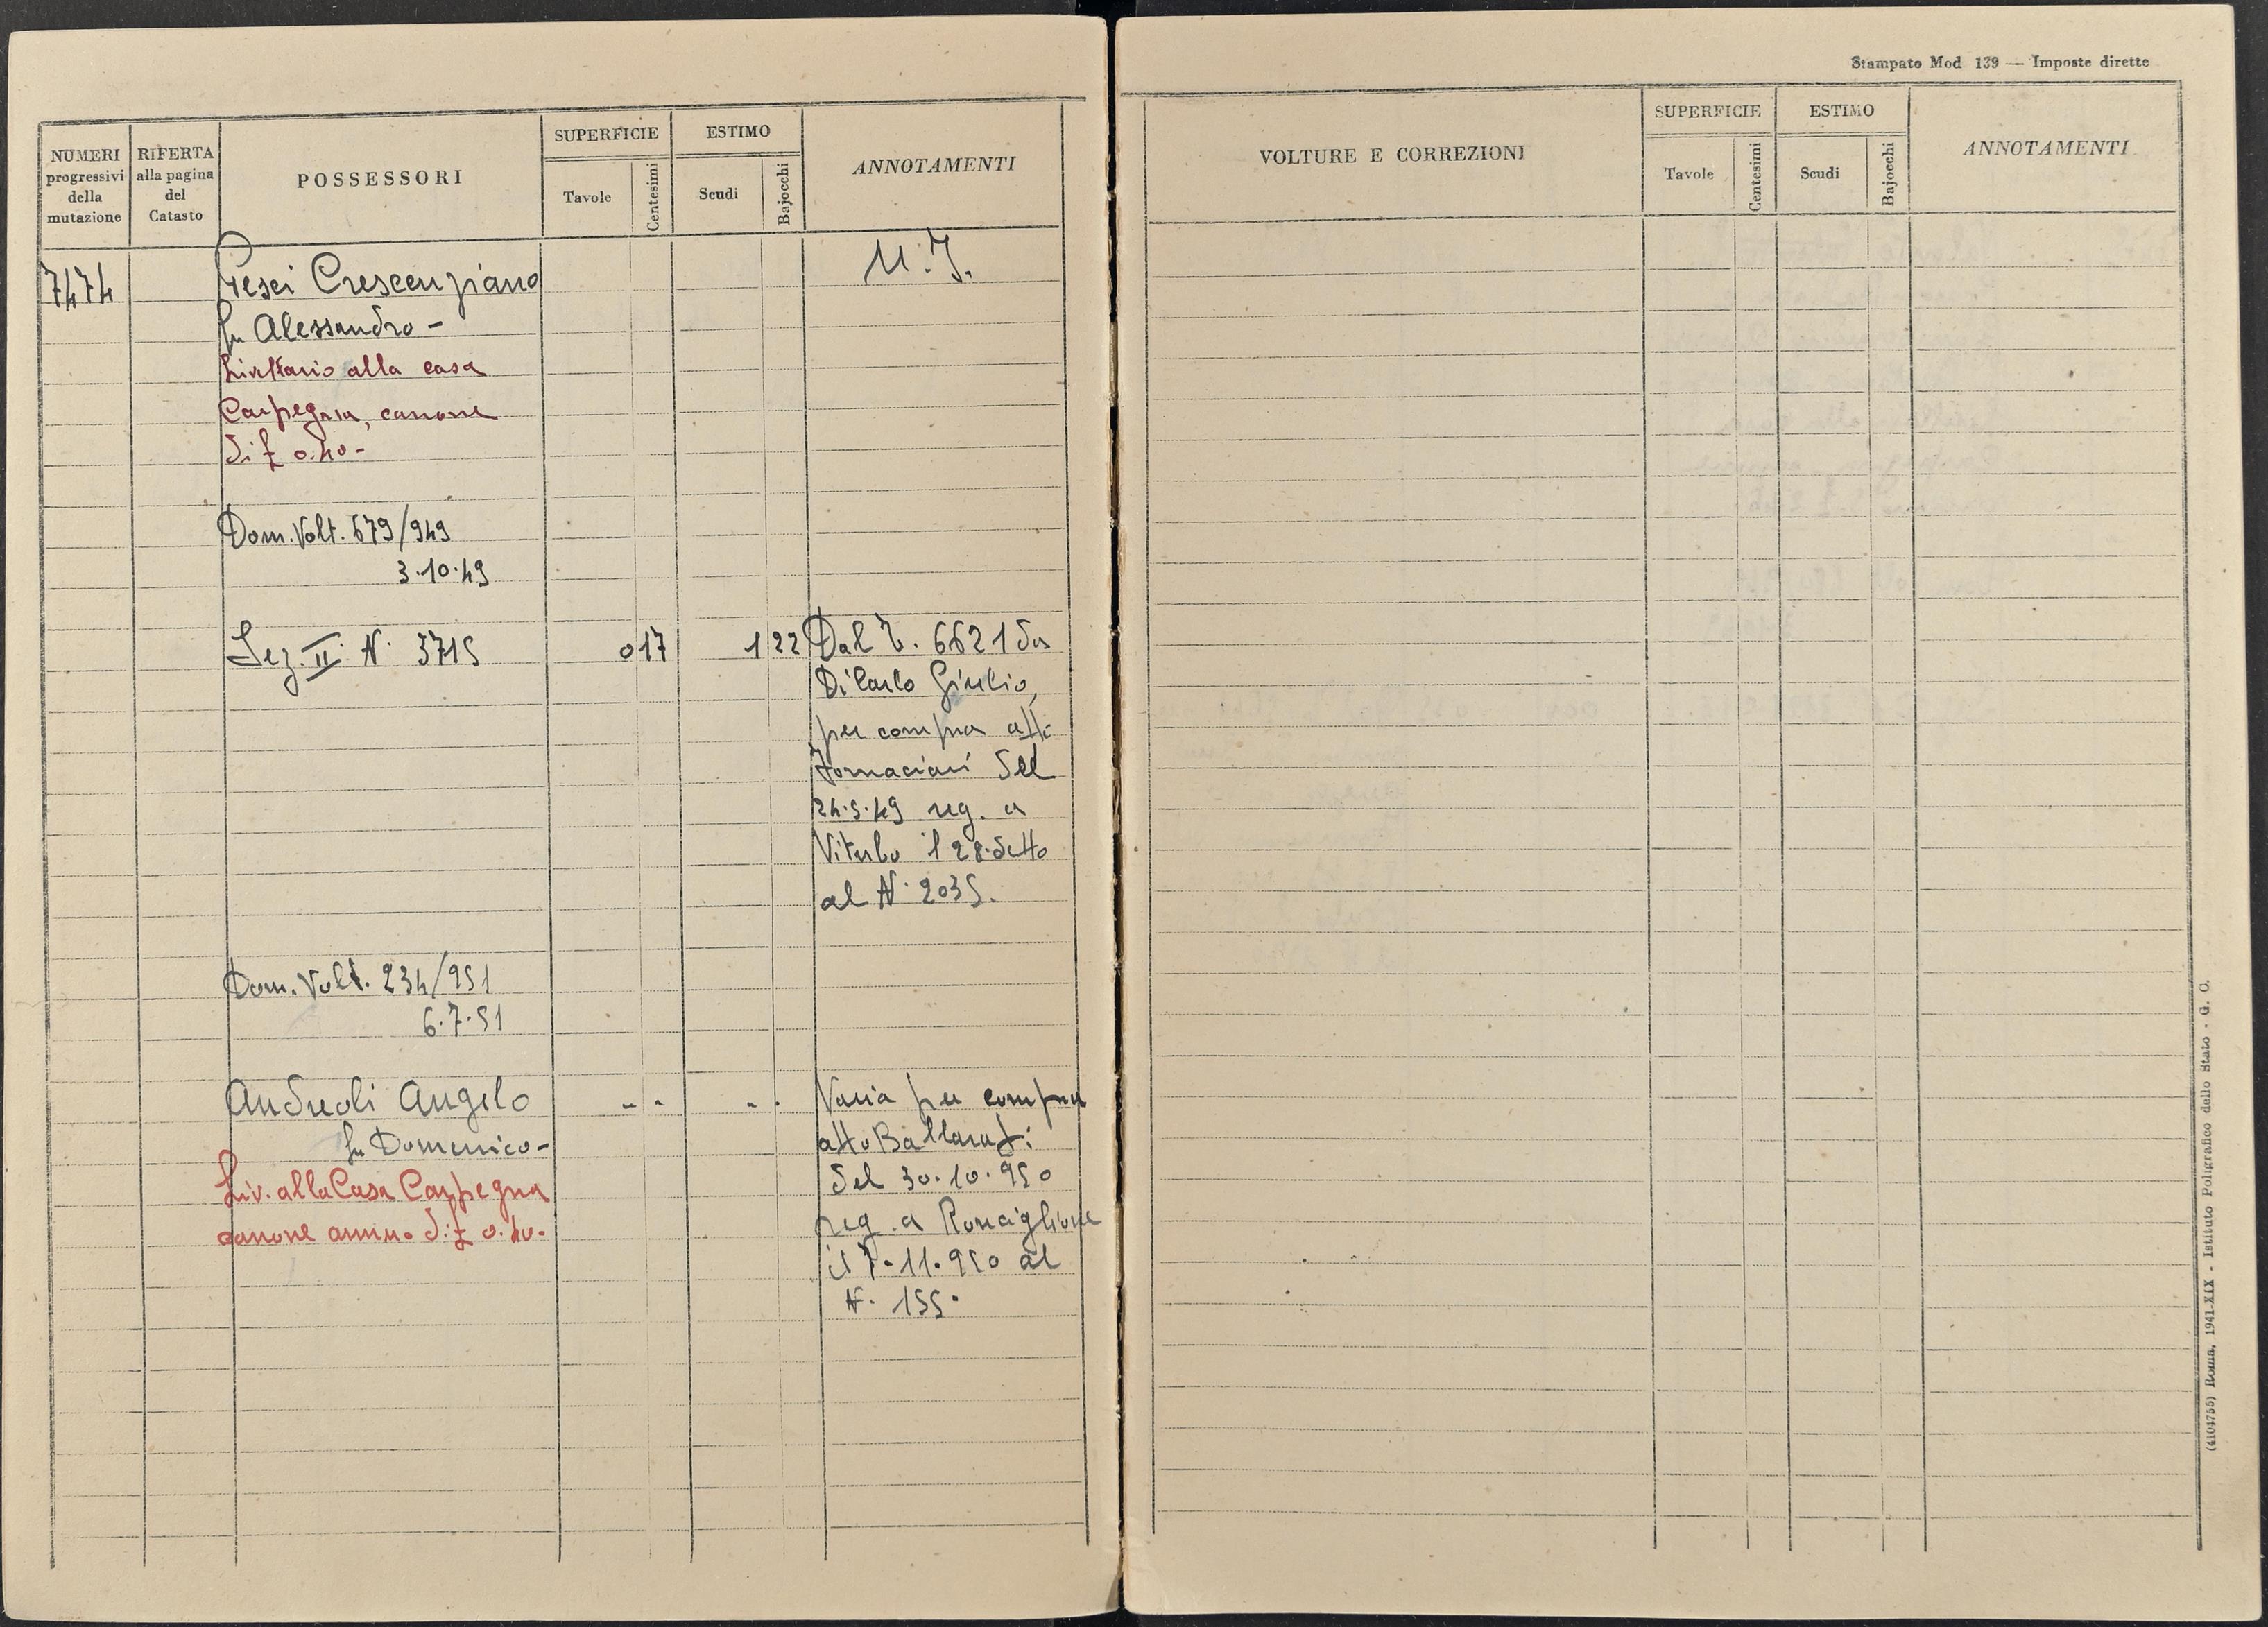 NUMERI progressivi della mutazione
RIFERTA alla pagina del Catasto
POSSESSORI
SUPERFICIE
Tavole
Centesimi
ESTIMO
Scudi
Bajocchi
ANNOTAMENTI
7474
Crescenziano
M.I.
fu Alessandro -
Livellario alla casa
Carpegna, canone
di £ 0.40 -
Dom. Volt. 679/949
3.10.49
Sez. II. N. 3715
0 17
1 22
Dal 6621 da
Di Carlo Giulio,
per compra atto
Fornaciari del
24.5.49 reg. a
Viterbo il 28 detto
al N. 2035.
Dom. Volt. 234/951
6.7.51
Andreoli Angelo
- -
- .
Varia per compra
fu Domenico -
atto Ballarati
Liv. alla Casa Carpegna
del 30.10.950
canone annuo di £ 0.40.
reg. a Ronciglione
il 7.11.950 al
N. 155.
Stampato Mod 139 — Imposte dirette
VOLTURE E CORREZIONI
SUPERFICIE
Tavole
Centesimi
ESTIMO
Scudi
Bajocchi
ANNOTAMENTI
(4104755) Roma, 1941-XIX - Istituto Poligrafico dello Stato - G. C.